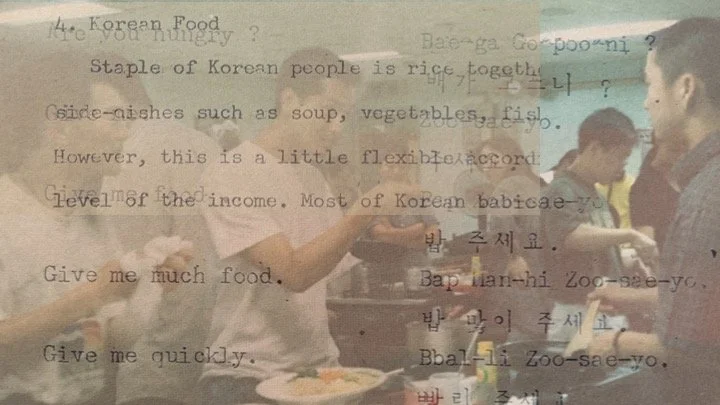 4. Korean Food
Are you hungry ? Bae-ga Go-poo-ni ?
Staple of Korean people is rice togethe
배가 고프니 ?
side-nishes such as soup, vegetables, fish
Give Zoo-sae-yo.
However, this is a little flexible accordi
level of the income. Most of Korean babi
Give me food. sae-yo
밥 주세요.
Give me much food. Bap Man-hi Zoo-sae-yo.
밥 많이 주세요.
Give me quickly. Bbal-li Zoo-sae-yo.
빨리 주세요